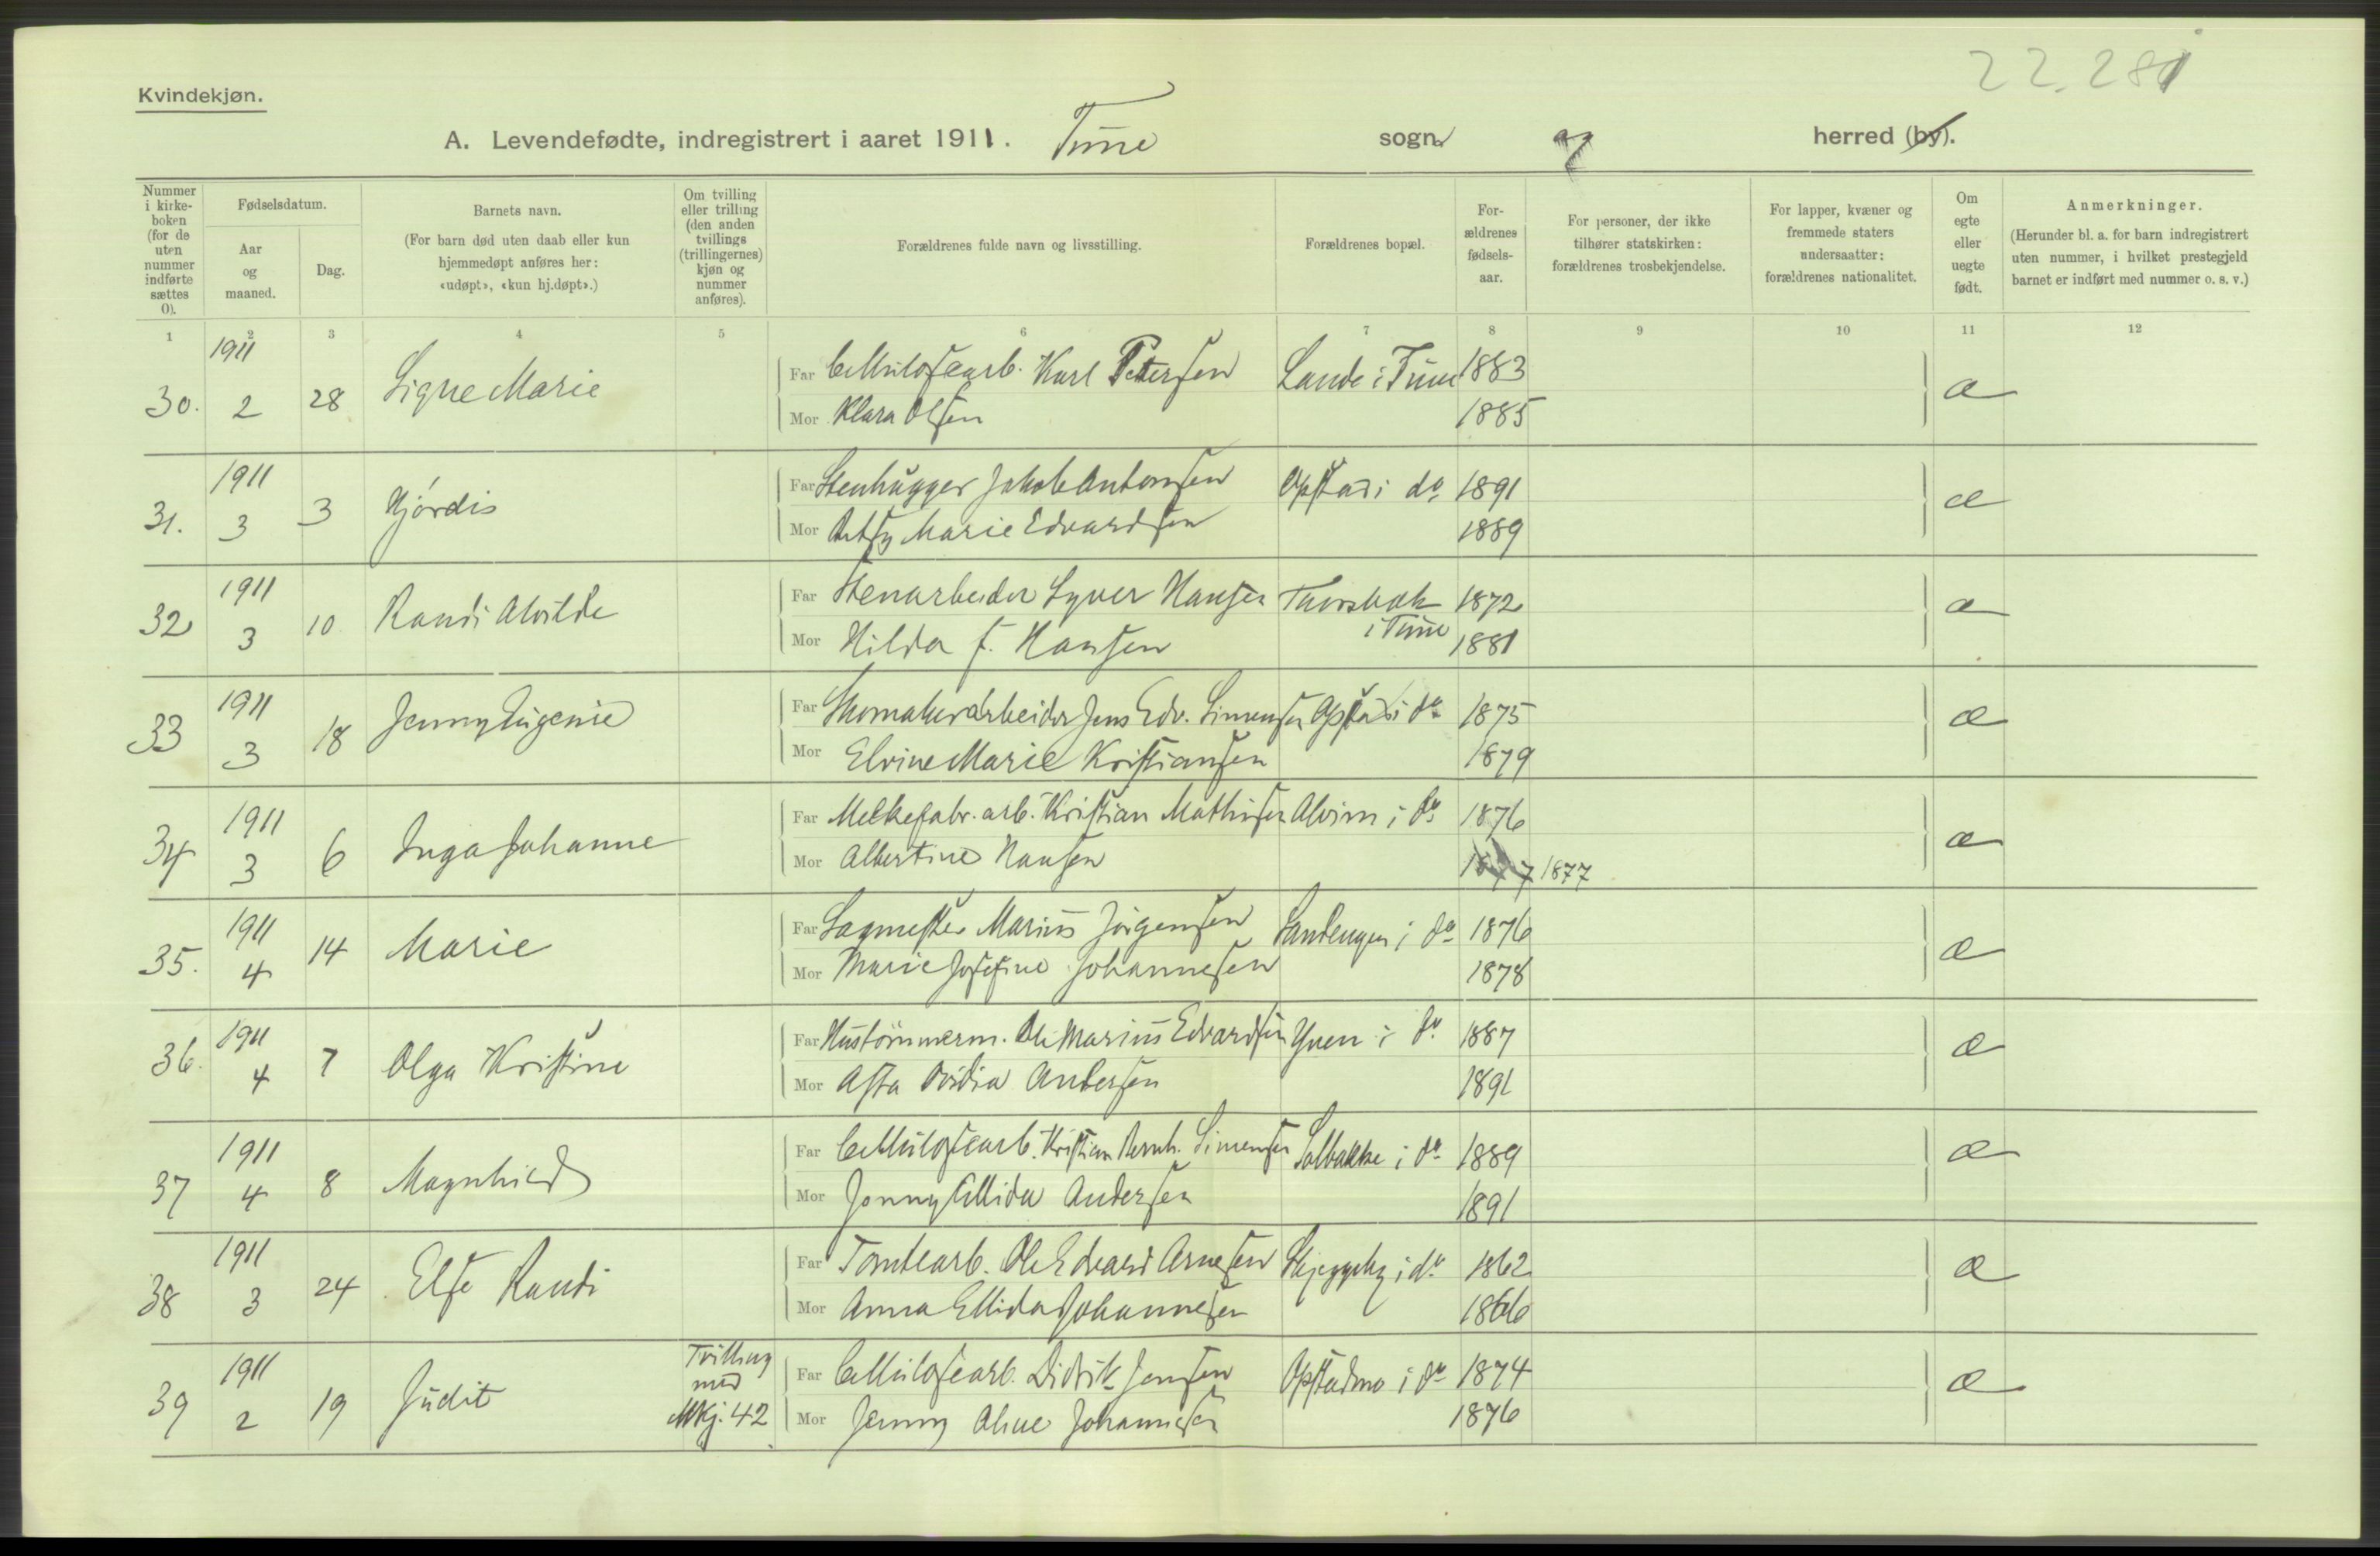 22.281
Kvindekjøn.
A. Levendefødte, indregistrert i aaret 1911. Tune sogn og herred (by).
Nummer i kirkeboken (for de uten nummer indførte sættes 0).
Fødselsdatum.
Aar og maaned.
Dag.
Barnets navn.
(For barn død uten daab eller kun hjemmedøpt anføres her: «udøpt», «kun hj.døpt».)
Om tvilling eller trilling (den anden tvillings (trillingernes) kjøn og nummer anføres).
Forældrenes fulde navn og livsstilling.
Forældrenes bopæl.
Forældrenes fødselsaar.
For personer, der ikke tilhører statskirken: forældrenes trosbekjendelse.
For lapper, kvæner og fremmede staters undersaatter: forældrenes nationalitet.
Om egte eller uegte født.
Anmerkninger.
(Herunder bl. a. for barn indregistrert uten nummer, i hvilket prestegjeld barnet er indført med nummer o. s. v.)
1 2 3 4 5 6 7 8 9 10 11 12
30. 1911 2 28 Signe Marie Far Cellulosearb. Karl Petersen Lande i Tune 1883 æ
Mor Klara Olsen 1885
31. 1911 3 3 Hjórdis Far Stenhugger Jakob Antonsen Opstad i do 1891 æ
Mor Betsy Marie Edvardsen 1889
32 1911 3 10 Randi Alvilde Far Stenarbeider Syver Hansen Thorsbæk i Tune 1872 æ
Mor Hilda f. Hansen 1881
33 1911 3 18 Jenny Eugenie Far Skomakerarbeider Jens Edv. Simensen Opstad i do 1875 æ
Mor Elvine Marie Kristiansen 1879
34 1911 3 6 Inga Johanne Far Melkefabr. arb. Kristian Mathisen Alvim i do 1876 æ
Mor Albertine Hansen 1877
35. 1911 4 14 Marie Far Sagmester Marius Jörgensen Sandengen i do 1876 æ
Mor Marie Josefine Johannesen 1878
36. 1911 4 7 Olga Kristine Far Hustömmerm. Ole Marius Edvardsen Yven i do 1887 æ
Mor Asta Ovidia Andersen 1891
37 1911 4 8 Magnhild Far Cellulosearb. Kristian Bernh. Simensen Solbakke i do 1889 æ
Mor Jonny Ellida Andersen 1891
38 1911 3 24 Else Randi Far Tomtearb. Ole Edvard Arnesen Skjeggeby i do 1862 æ
Mor Anna Ellida Johannesen 1866
39 1911 2 19 Judit Tvilling med Mkj. 42 Far Cellulosearb. Didrik Jensen Opstadmo i do 1874 æ
Mor Jenny Oline Johannesen 1876